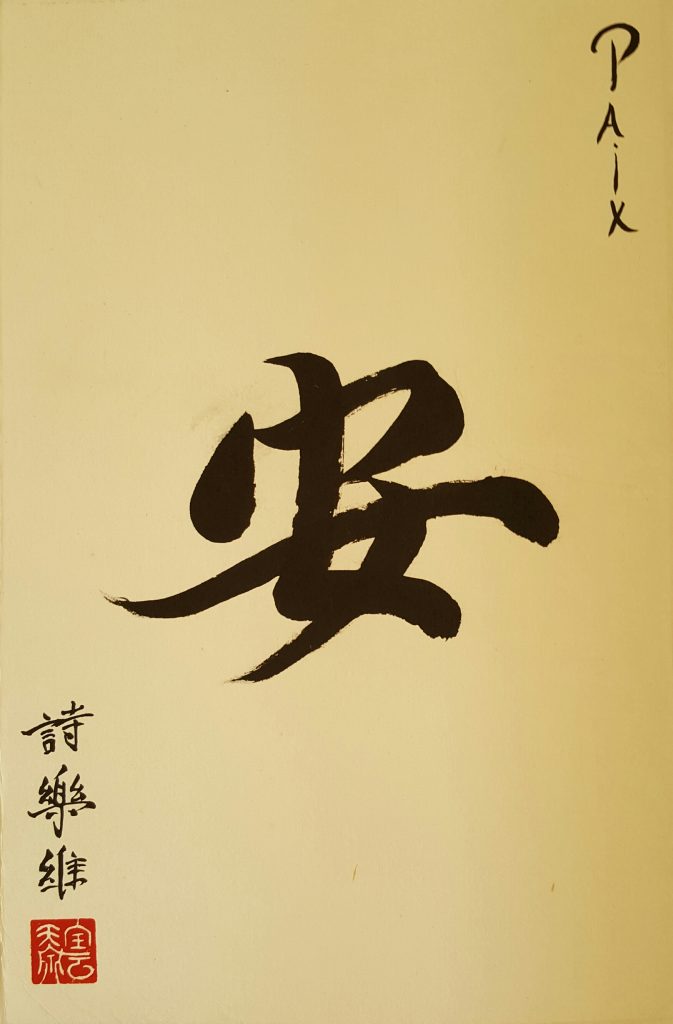 PAiX
安
詩樂維